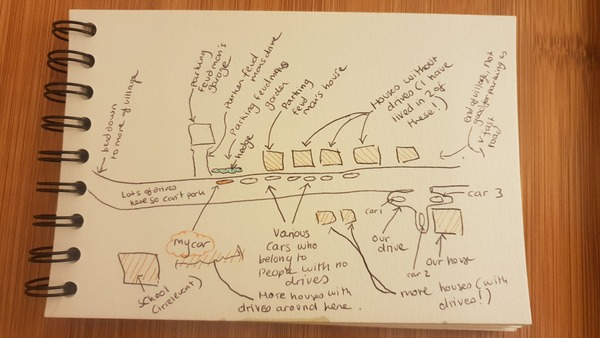 bend down
to more of village
parking
feud man's
garage
Parking feud
mans drive
Parking feud mans
garden
hedge
Parking
feud
man's house
Houses without
drives (I have
lived in 2 of
these!)
end of village. Not
good for parking as
v. fast
road
Lots of drives
here so can't park
my car
Various
cars who
belong to
people with no
drives
car 1
our
drive
car 2
car 3
our house
school
(irrelevant)
More houses with
drives around here.
more houses (with
drives!)